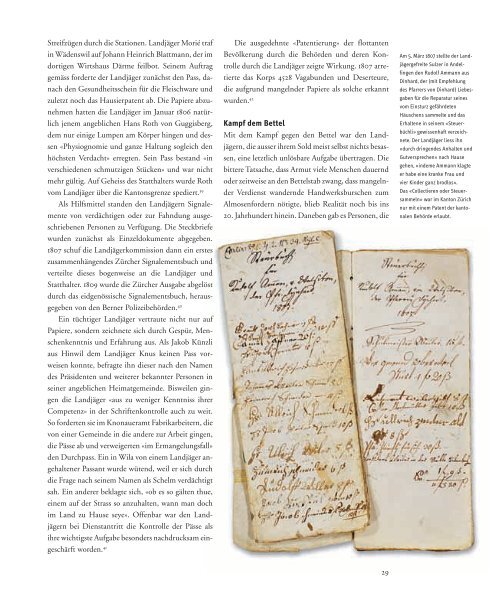 Streifzügen durch die Stationen. Landjäger Morié traf
in Wädenswil auf Johann Heinrich Blattmann, der im
dortigen Wirtshaus Därme feilbot. Seinem Auftrag
gemäss forderte der Landjäger zunächst den Pass, da-
nach den Gesundheitsschein für die Fleischware und
zuletzt noch das Hausierpatent ab. Die Papiere abzu-
nehmen hatten die Landjäger im Januar 1806 natür-
lich jenem angeblichen Hans Roth von Guggisberg,
dem nur einige Lumpen am Körper hingen und des-
sen «Physiognomie und ganze Haltung sogleich den
höchsten Verdacht» erregten. Sein Pass bestand «in
verschiedenen schmutzigen Stücken» und war nicht
mehr gültig. Auf Geheiss des Statthalters wurde Roth
vom Landjäger über die Kantonsgrenze spediert.39
Als Hilfsmittel standen den Landjägern Signale-
mente von verdächtigen oder zur Fahndung ausge-
schriebenen Personen zu Verfügung. Die Steckbriefe
wurden zunächst als Einzeldokumente abgegeben.
1807 schuf die Landjägerkommission dann ein erstes
zusammenhängendes Zürcher Signalementsbuch und
verteilte dieses bogenweise an die Landjäger und
Statthalter. 1809 wurde die Zürcher Ausgabe abgelöst
durch das eidgenössische Signalementsbuch, heraus-
gegeben von den Berner Polizeibehörden.40
Ein tüchtiger Landjäger vertraute nicht nur auf
Papiere, sondern zeichnete sich durch Gespür, Men-
schenkenntnis und Erfahrung aus. Als Jakob Künzli
aus Hinwil dem Landjäger Knus keinen Pass vor-
weisen konnte, befragte ihn dieser nach den Namen
des Präsidenten und weiterer bekannter Personen in
seiner angeblichen Heimatgemeinde. Bisweilen gin-
gen die Landjäger «aus zu weniger Kenntniss ihrer
Competenz» in der Schriftenkontrolle auch zu weit.
So forderten sie im Knonaueramt Fabrikarbeitern, die
von einer Gemeinde in die andere zur Arbeit gingen,
die Pässe ab und verweigerten «im Ermangelungsfall»
den Durchpass. Ein in Wila von einem Landjäger an-
gehaltener Passant wurde wütend, weil er sich durch
die Frage nach seinem Namen als Schelm verdächtigt
sah. Ein anderer beklagte sich, «ob es so gälten thue,
einem auf der Strass so anzuhalten, wann man doch
im Land zu Hause seye». Offenbar war den Land-
jägern bei Dienstantritt die Kontrolle der Pässe als
ihre wichtigste Aufgabe besonders nachdrucksam ein-
geschärft worden.41
Die ausgedehnte «Patentierung» der flottanten
Bevölkerung durch die Behörden und deren Kon-
trolle durch die Landjäger zeigte Wirkung. 1807 arre-
tierte das Korps 4528 Vagabunden und Deserteure,
die aufgrund mangelnder Papiere als solche erkannt
wurden.42
Kampf dem Bettel
Mit dem Kampf gegen den Bettel war den Land-
jägern, die ausser ihrem Sold meist selbst nichts besas-
sen, eine letztlich unlösbare Aufgabe übertragen. Die
bittere Tatsache, dass Armut viele Menschen dauernd
oder zeitweise an den Bettelstab zwang, dass mangeln-
der Verdienst wandernde Handwerksburschen zum
Almosenfordern nötigte, blieb Realität noch bis ins
20. Jahrhundert hinein. Daneben gab es Personen, die
Am 5. März 1807 stellte der Land-
jägergefreite Sulzer in Andel-
fingen den Rudolf Ammann aus
Dinhard, der (mit Empfehlung
des Pfarrers von Dinhard) Liebes-
gaben für die Reparatur seines
vom Einsturz gefährdeten
Häuschens sammelte und das
Erhaltene in seinem «Steuer-
büchli» gewissenhaft verzeich-
nete. Der Landjäger liess ihn
«durch dringendes Anhalten und
Gutversprechen» nach Hause
gehen, «indeme Ammann klagte,
er habe eine kranke Frau und
vier Kinder ganz brodlos».
Das «Collectieren oder Steuer-
sammeln» war im Kanton Zürich
nur mit einem Patent der kanto-
nalen Behörde erlaubt.
29